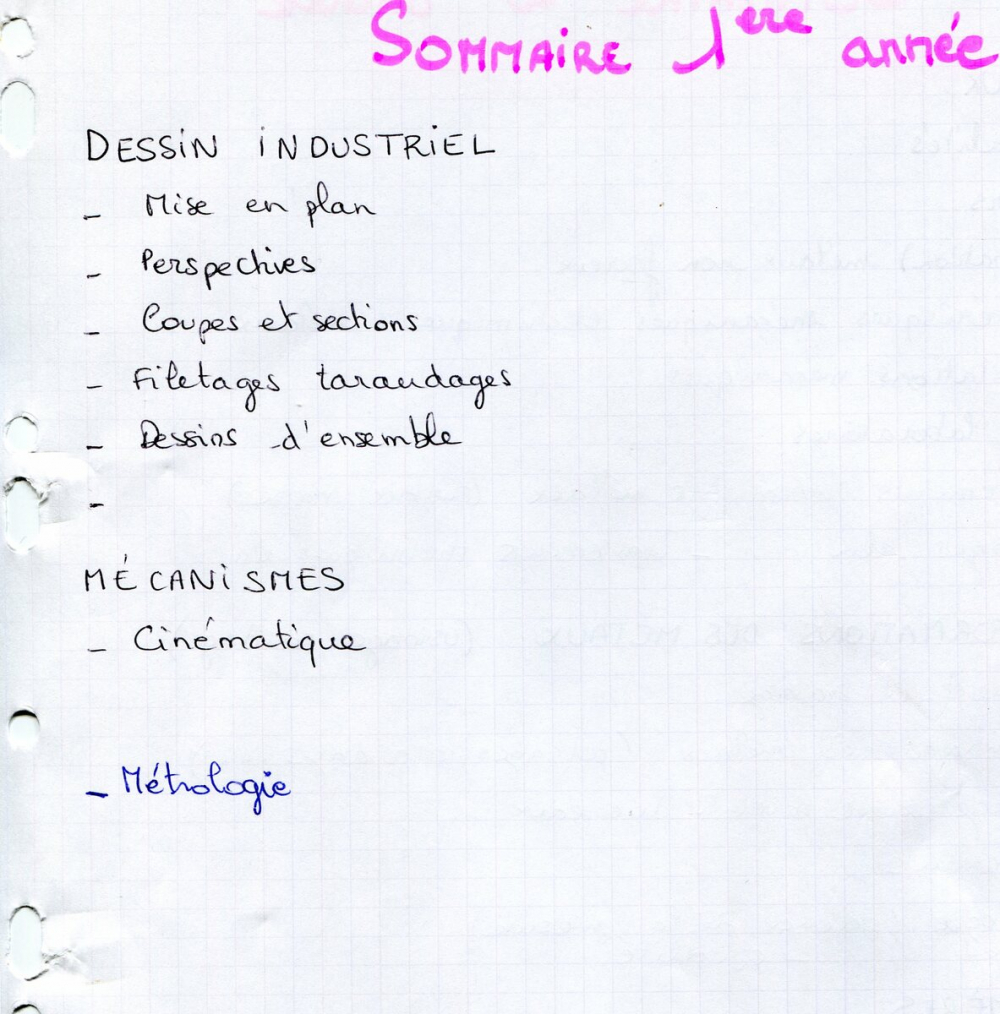 SOMMAIRE 1ere année
DESSIN INDUSTRIEL
- Mise en plan
- Perspectives
- Coupes et sections
- Filetages taraudages
- Dessins d'ensemble
-
MÉCANISMES
- Cinématique
- Métrologie